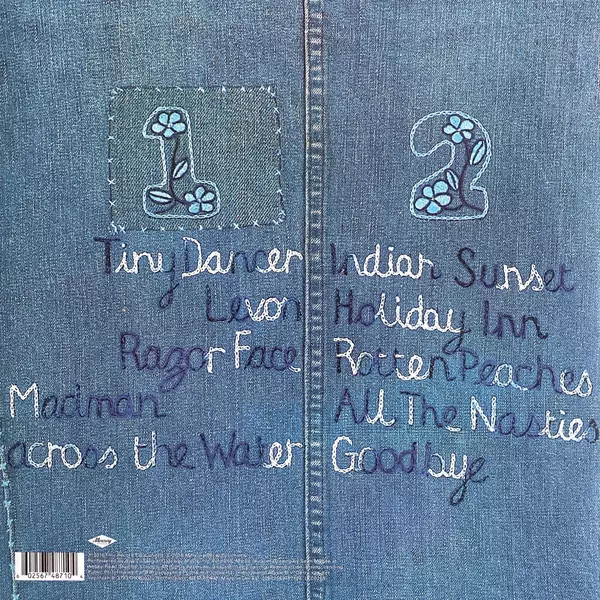 1
Tiny Dancer
Levon
Razor Face
Madman
across the Water
2
Indian Sunset
Holiday Inn
Rotten Peaches
All The Nasties
Goodbye
6 02567 48710 4